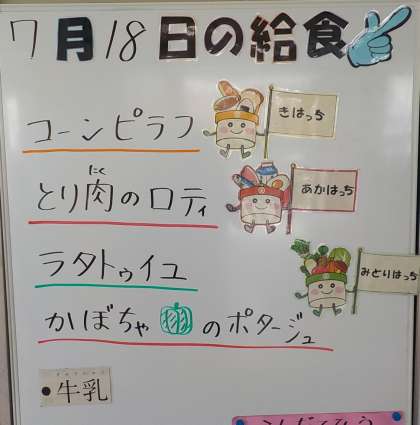 7月18日の給食
コーンピラフ
きはっち
とり肉のロティ
にく
あかはっち
ラタトゥイユ
みどりはっち
かぼちゃのポタージュ
牛乳